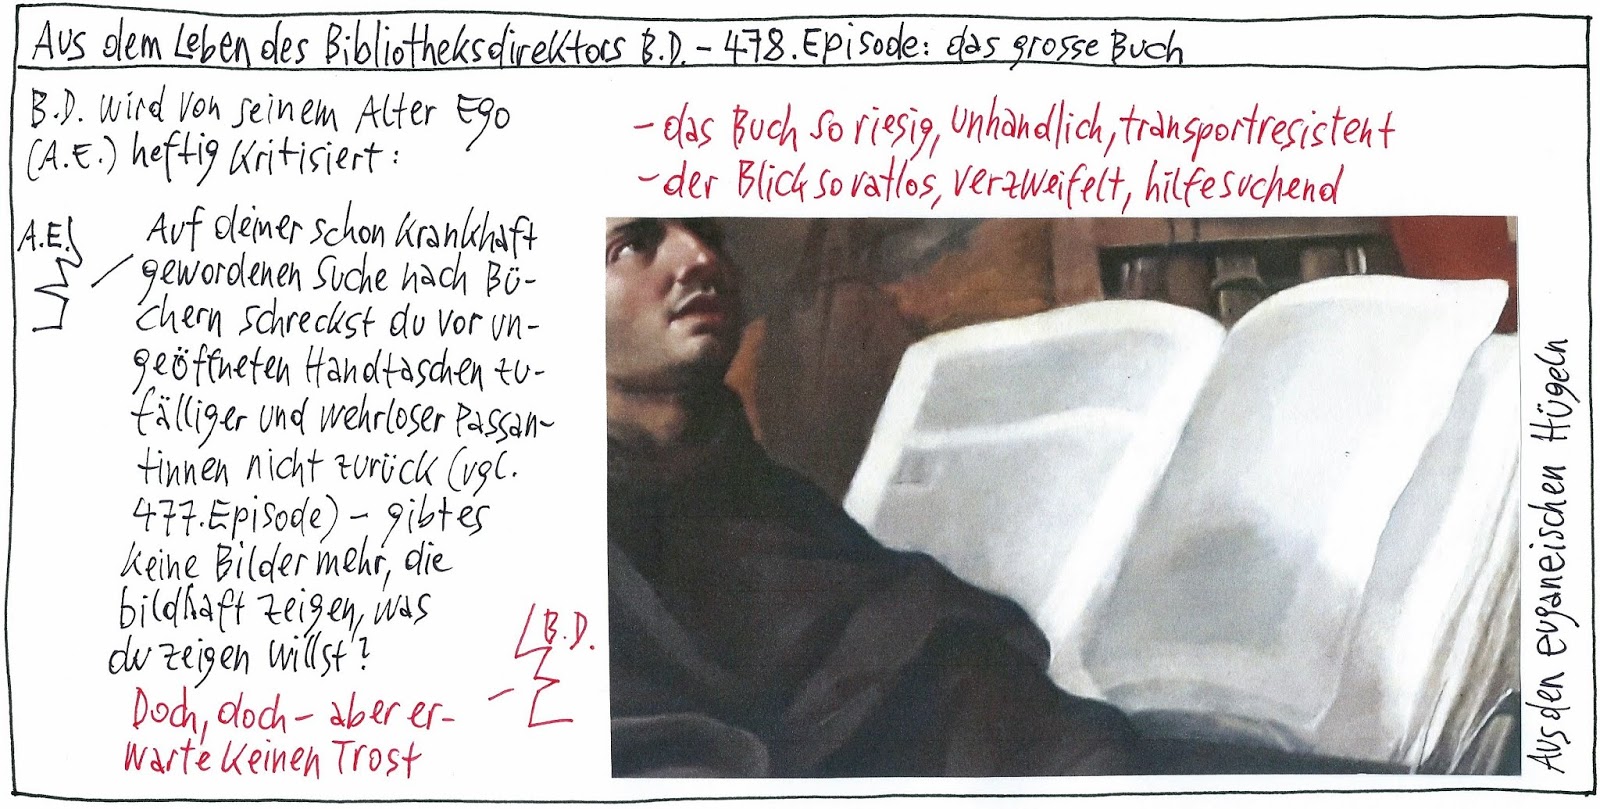 Aus dem Leben des Bibliotheksdirektors B.D. – 478. Episode: das grosse Buch
B.D. wird von seinem Alter Ego
(A.E.) heftig kritisiert:
A.E.
Auf deiner schon krankhaft
gewordenen Suche nach Bü-
chern schreckst du vor un-
geöffneten Handtaschen zu-
fälliger und wehrloser Passan-
tinnen nicht zurück (vgl.
477. Episode) – gibt es
keine Bilder mehr, die
bildhaft zeigen, was
du zeigen willst?
B.D.
Doch, doch – aber er-
warte keinen Trost
– das Buch so riesig, unhandlich, transportresistent
– der Blick so ratlos, verzweifelt, hilfesuchend
Aus den euganeischen Hügeln